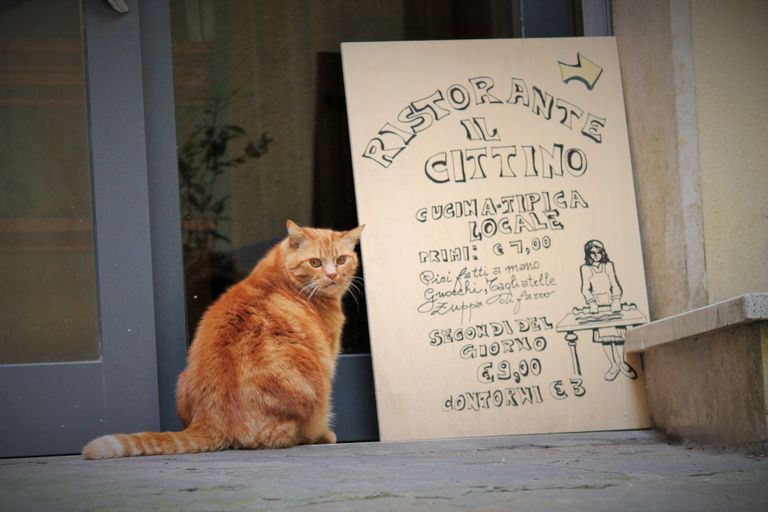 RISTORANTE
IL
CITTINO
CUCINA•TIPICA
LOCALE
PRIMI: € 7,00
Pici fatti a mano
Gnocchi, Tagliatelle
Zuppa di farro
SECONDI DEL
GIORNO
€9,00
CONTORNI €3